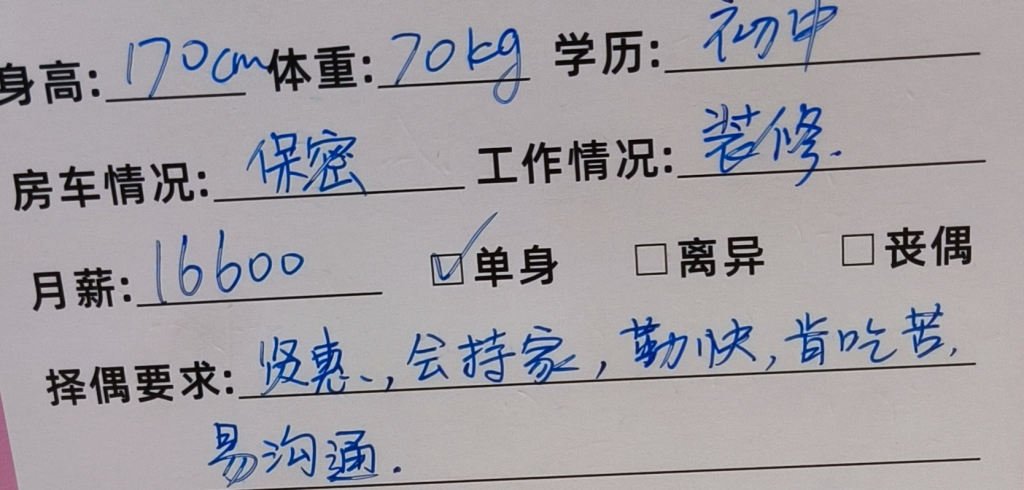 身高: 170cm 体重: 70kg 学历: 初中
房车情况: 保密 工作情况: 装修.
月薪: 16600 ☑单身 □离异 □丧偶
择偶要求: 贤惠、,会持家,勤快,肯吃苦,
易沟通.